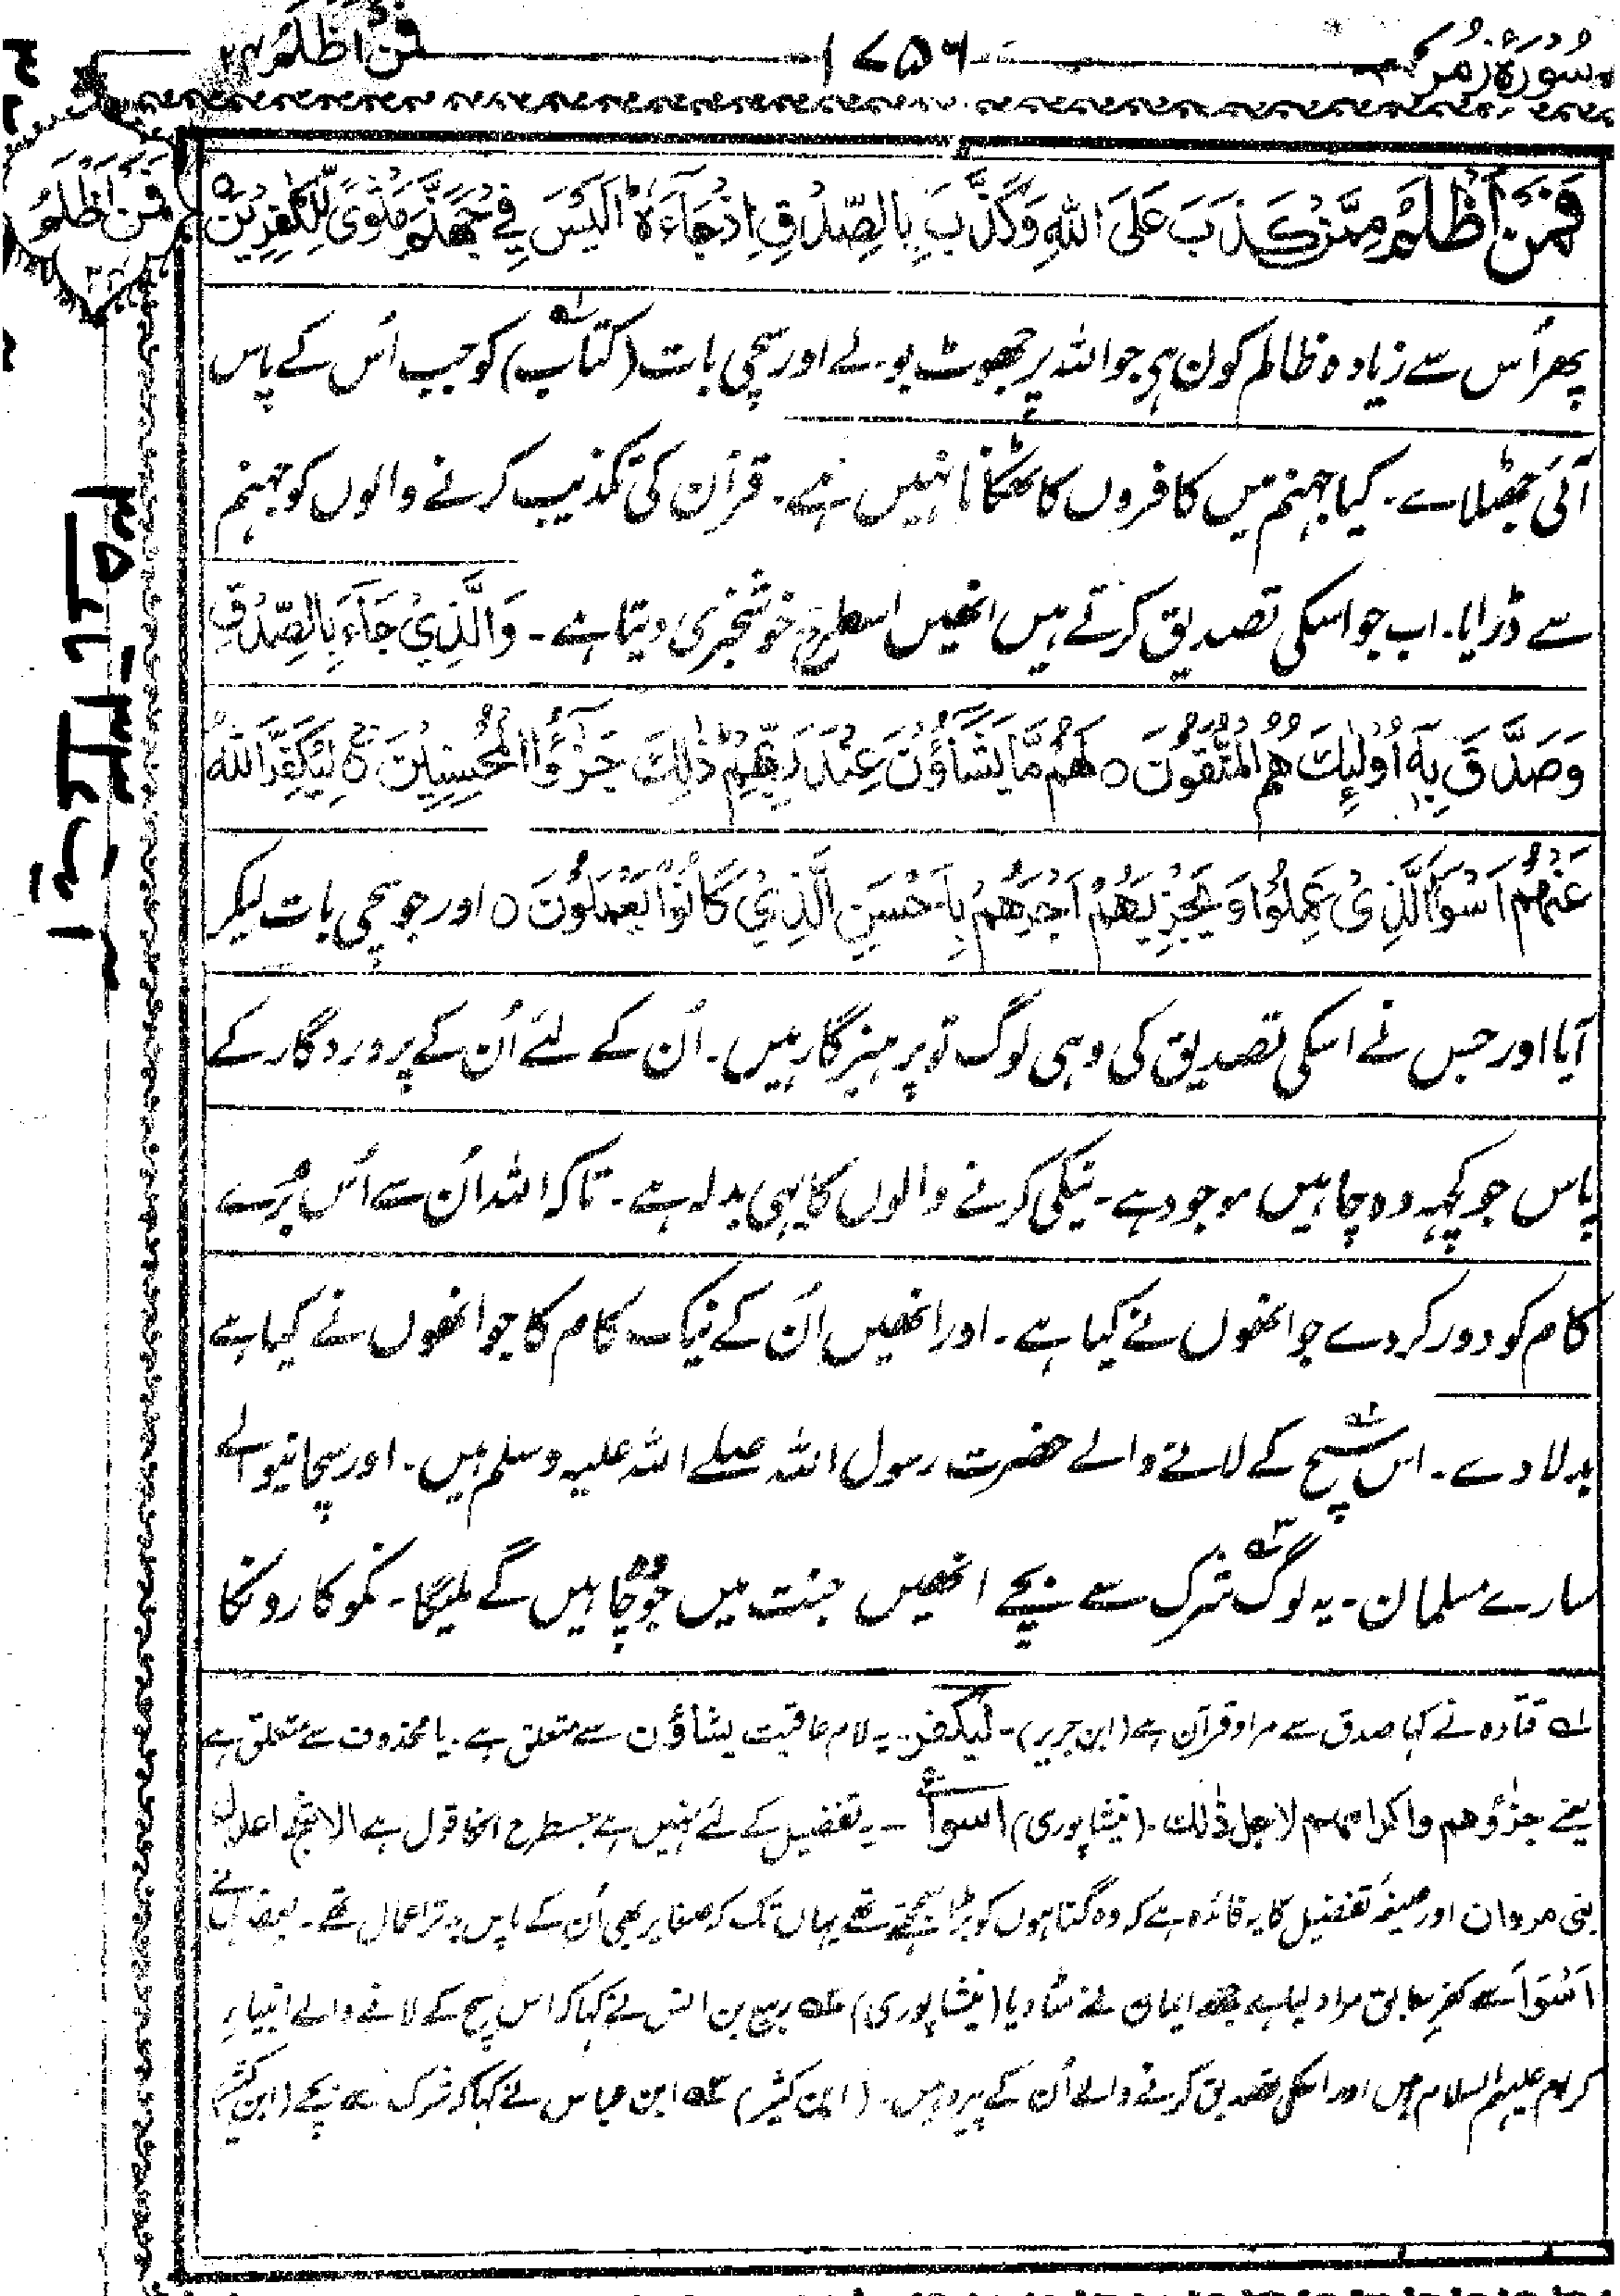 سُورَةُ زُمَر ۱۷۵۶ فَمَنْ اَظْلَمُ ۲۴
فَمَنْ اَظْلَمُ ۲۴
فَمَنْ اَظْلَمُ مِمَّنْ كَذَبَ عَلَى اللهِ وَكَذَّبَ بِالصِّدْقِ اِذْ جَآءَهٗ ؕ اَلَيْسَ فِيْ جَهَنَّمَ مَثْوًى لِّلْكٰفِرِيْنَ ٥
پھر اُس سے زیادہ ظالم کون ہی جو اللہ پر جھوٹ بولے اور سچی بات (کتاب) کو جب اُس کے پاس
آئی جھٹلاے۔ کیا جہنم میں کافروں کا ٹھکانا نہیں ہے۔ قرآن کی تکذیب کرنے والوں کو جہنم
سے ڈرایا۔ اب جو اسکی تصدیق کرتے ہیں انھیں اسطرح خوشخبری دیتا ہے۔ وَالَّذِيْ جَآءَ بِالصِّدْقِ
وَصَدَّقَ بِهٖٓ اُولٰٓئِكَ هُمُ الْمُتَّقُوْنَ ٥ لَهُمْ مَّا يَشَآؤُنَ عِنْدَ رَبِّهِمْ ؕ ذٰلِكَ جَزٰٓؤُا الْمُحْسِنِيْنَ ٥ لِيُكَفِّرَ اللهُ
عَنْهُمْ اَسْوَاَ الَّذِيْ عَمِلُوْا وَيَجْزِيَهُمْ اَجْرَهُمْ بِاَحْسَنِ الَّذِيْ كَانُوْا يَعْمَلُوْنَ ٥ اور جو سچی بات لیکر
آیا اور جس نے اسکی تصدیق کی وہی لوگ تو پرہیزگار ہیں۔ اُن کے لئے اُن کے پروردگار کے
پاس جو کچھہ وہ چاہیں موجود ہے۔ نیکی کرنے والوں کا یہی بدلہ ہے۔ تاکہ اللہ اُن سے اُس بُرے
کام کو دور کردے جو انھوں نے کیا ہے۔ اور انھیں اُن کے نیک کام کا جو انھوں نے کیا ہے
بدلا دے۔ اس سچ کے لانے والے حضرت رسول اللہ صلے اللہ علیہ وسلم ہیں۔ اور سچا نیوالے
سارے مسلمان۔ یہ لوگ شرک سے بچے انھیں جنت میں جو چاہیں گے ملیگا۔ نکو کارونکا
لہ قتادہ نے کہا صدق سے مراد قرآن ہے (ابن جریر)۔ لیکفر۔ یہ لام عاقبت یشاؤن سے متعلق ہے۔ یا محذوف سے متعلق ہے
یعنے جزؤهم واکرامهم لاجل ذٰلك۔ (نیشاپوری) اسوأ۔ یہ تفضیل کے لئے نہیں ہے جسطرح انکا قول ہے الاشج اعدل
بنی مروان اور صیغۂ تفضیل کا یہ فائدہ ہے کہ وہ گناہوں کو بڑا سمجھتے تھے یہاں تک کہ صغایر بھی اُن کے پاس بدتر اعمال تھے۔ بعض نے
اَسْوَاَ سے کفر سابق مراد لیا ہے جسے ایمان نے مٹا دیا (نیشاپوری) ۲ہ ربیع بن انس نے کہا کہ اس سچ کے لانے والے انبیاءِ
کرام علیہم السلام ہیں اور اسکی تصدیق کرنے والے اُن کے پیرو ہیں۔ (ابن کثیر) ۳ہ ابن عباس نے کہا کہ شرک سے بچے (ابن کثیر)